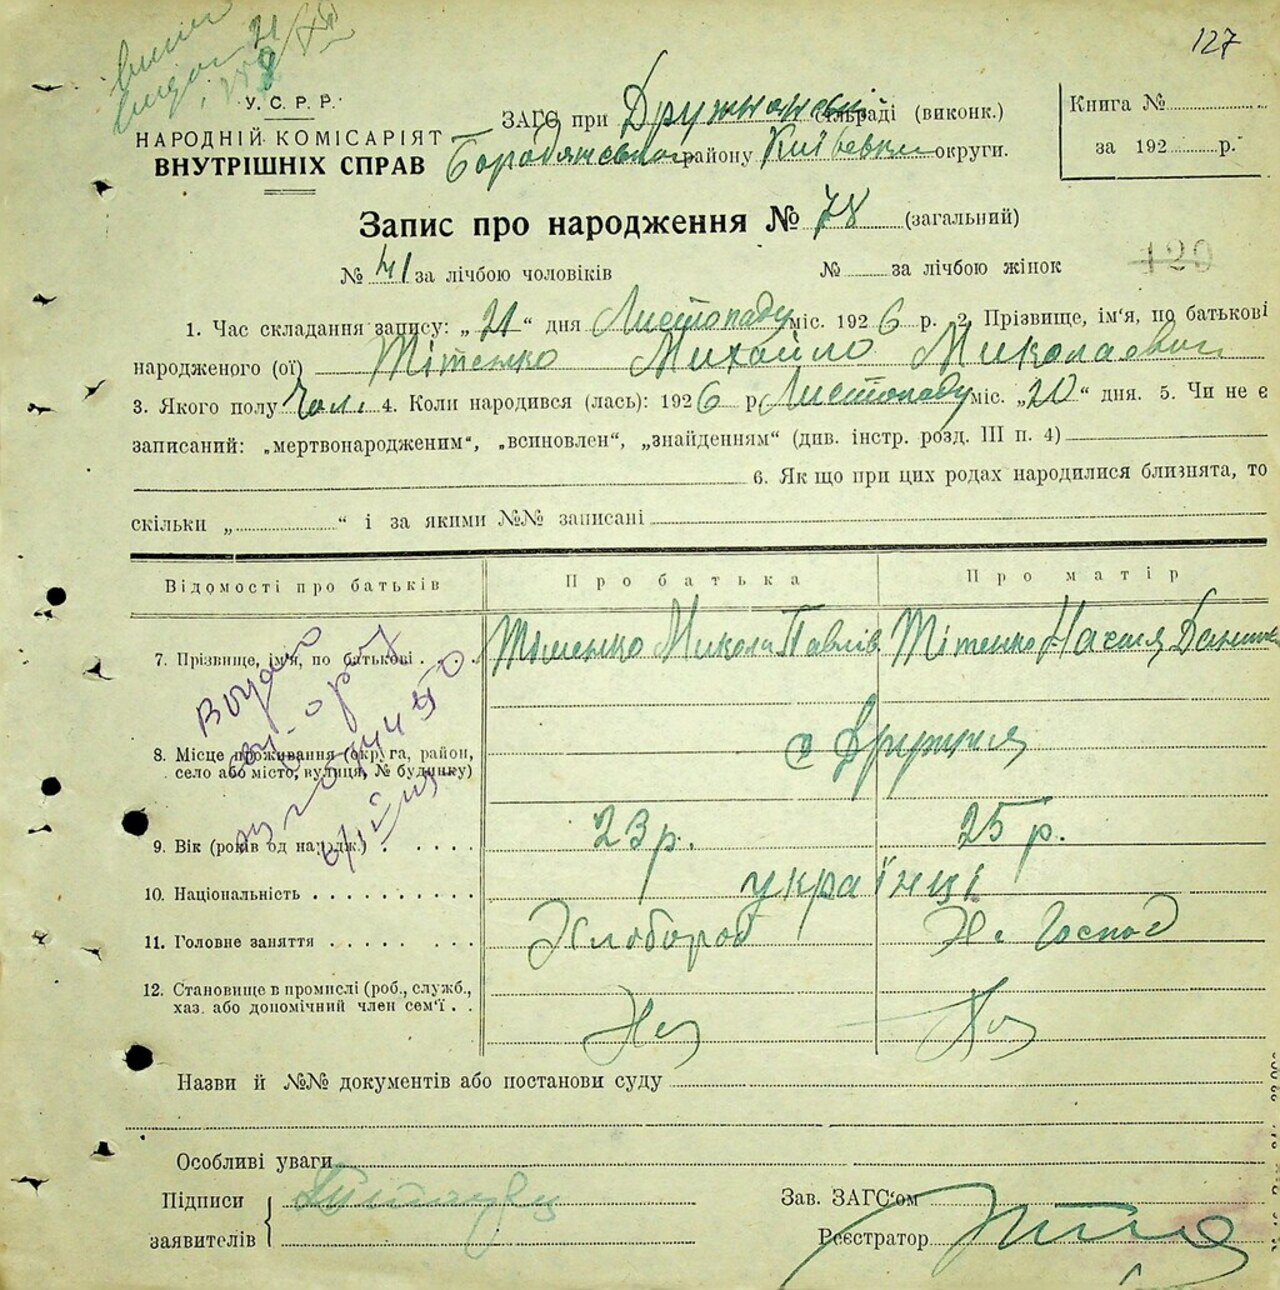 127
У. С. Р. Р.
НАРОДНІЙ КОМІСАРІЯТ
ВНУТРІШНІХ СПРАВ
ЗАГС при Дружнянській сільраді (виконк.)
Бородянського району Київської округи.
Книга №
за 192 р.
Запис про народження № 78 (загальний)
№ 41 за лічбою чоловіків № за лічбою жінок
120
1. Час складання запису: „21“ дня Листопаду міс. 1926 р. 2. Прізвище, ім'я, по батькові
народженого (ої) Тітенко Михайло Миколаєвич
3. Якого полу Чол. 4. Коли народився (лась): 1926 р. Листопаду міс. „20“ дня. 5. Чи не є
записаний: „мертвонародженим“, „всиновлен“, „знайденням“ (див. інстр. розд. III п. 4)
6. Як що при цих родах народилися близнята, то
скільки „ “ і за якими №№ записані
Відомості про батьків Про батька Про матір
7. Прізвище, ім'я, по батькові . . . Тітенко Микола Павлів Тітенко Настя
8. Місце проживання (округа, район,
село або місто, вулиця, № будинку)
с Дружня
9. Вік (років од народж.) . . . . . 23 р. 25 р.
10. Національність . . . . . . . . . українці
11. Головне заняття . . . . . . . . Хлібороб Х. Господ
12. Становище в промислі (роб., служб.,
хаз. або допомічний член сем'ї . .
Назви й №№ документів або постанови суду
Особливі уваги
Підписи
заявителів
Зав. ЗАГС'ом
Реєстратор